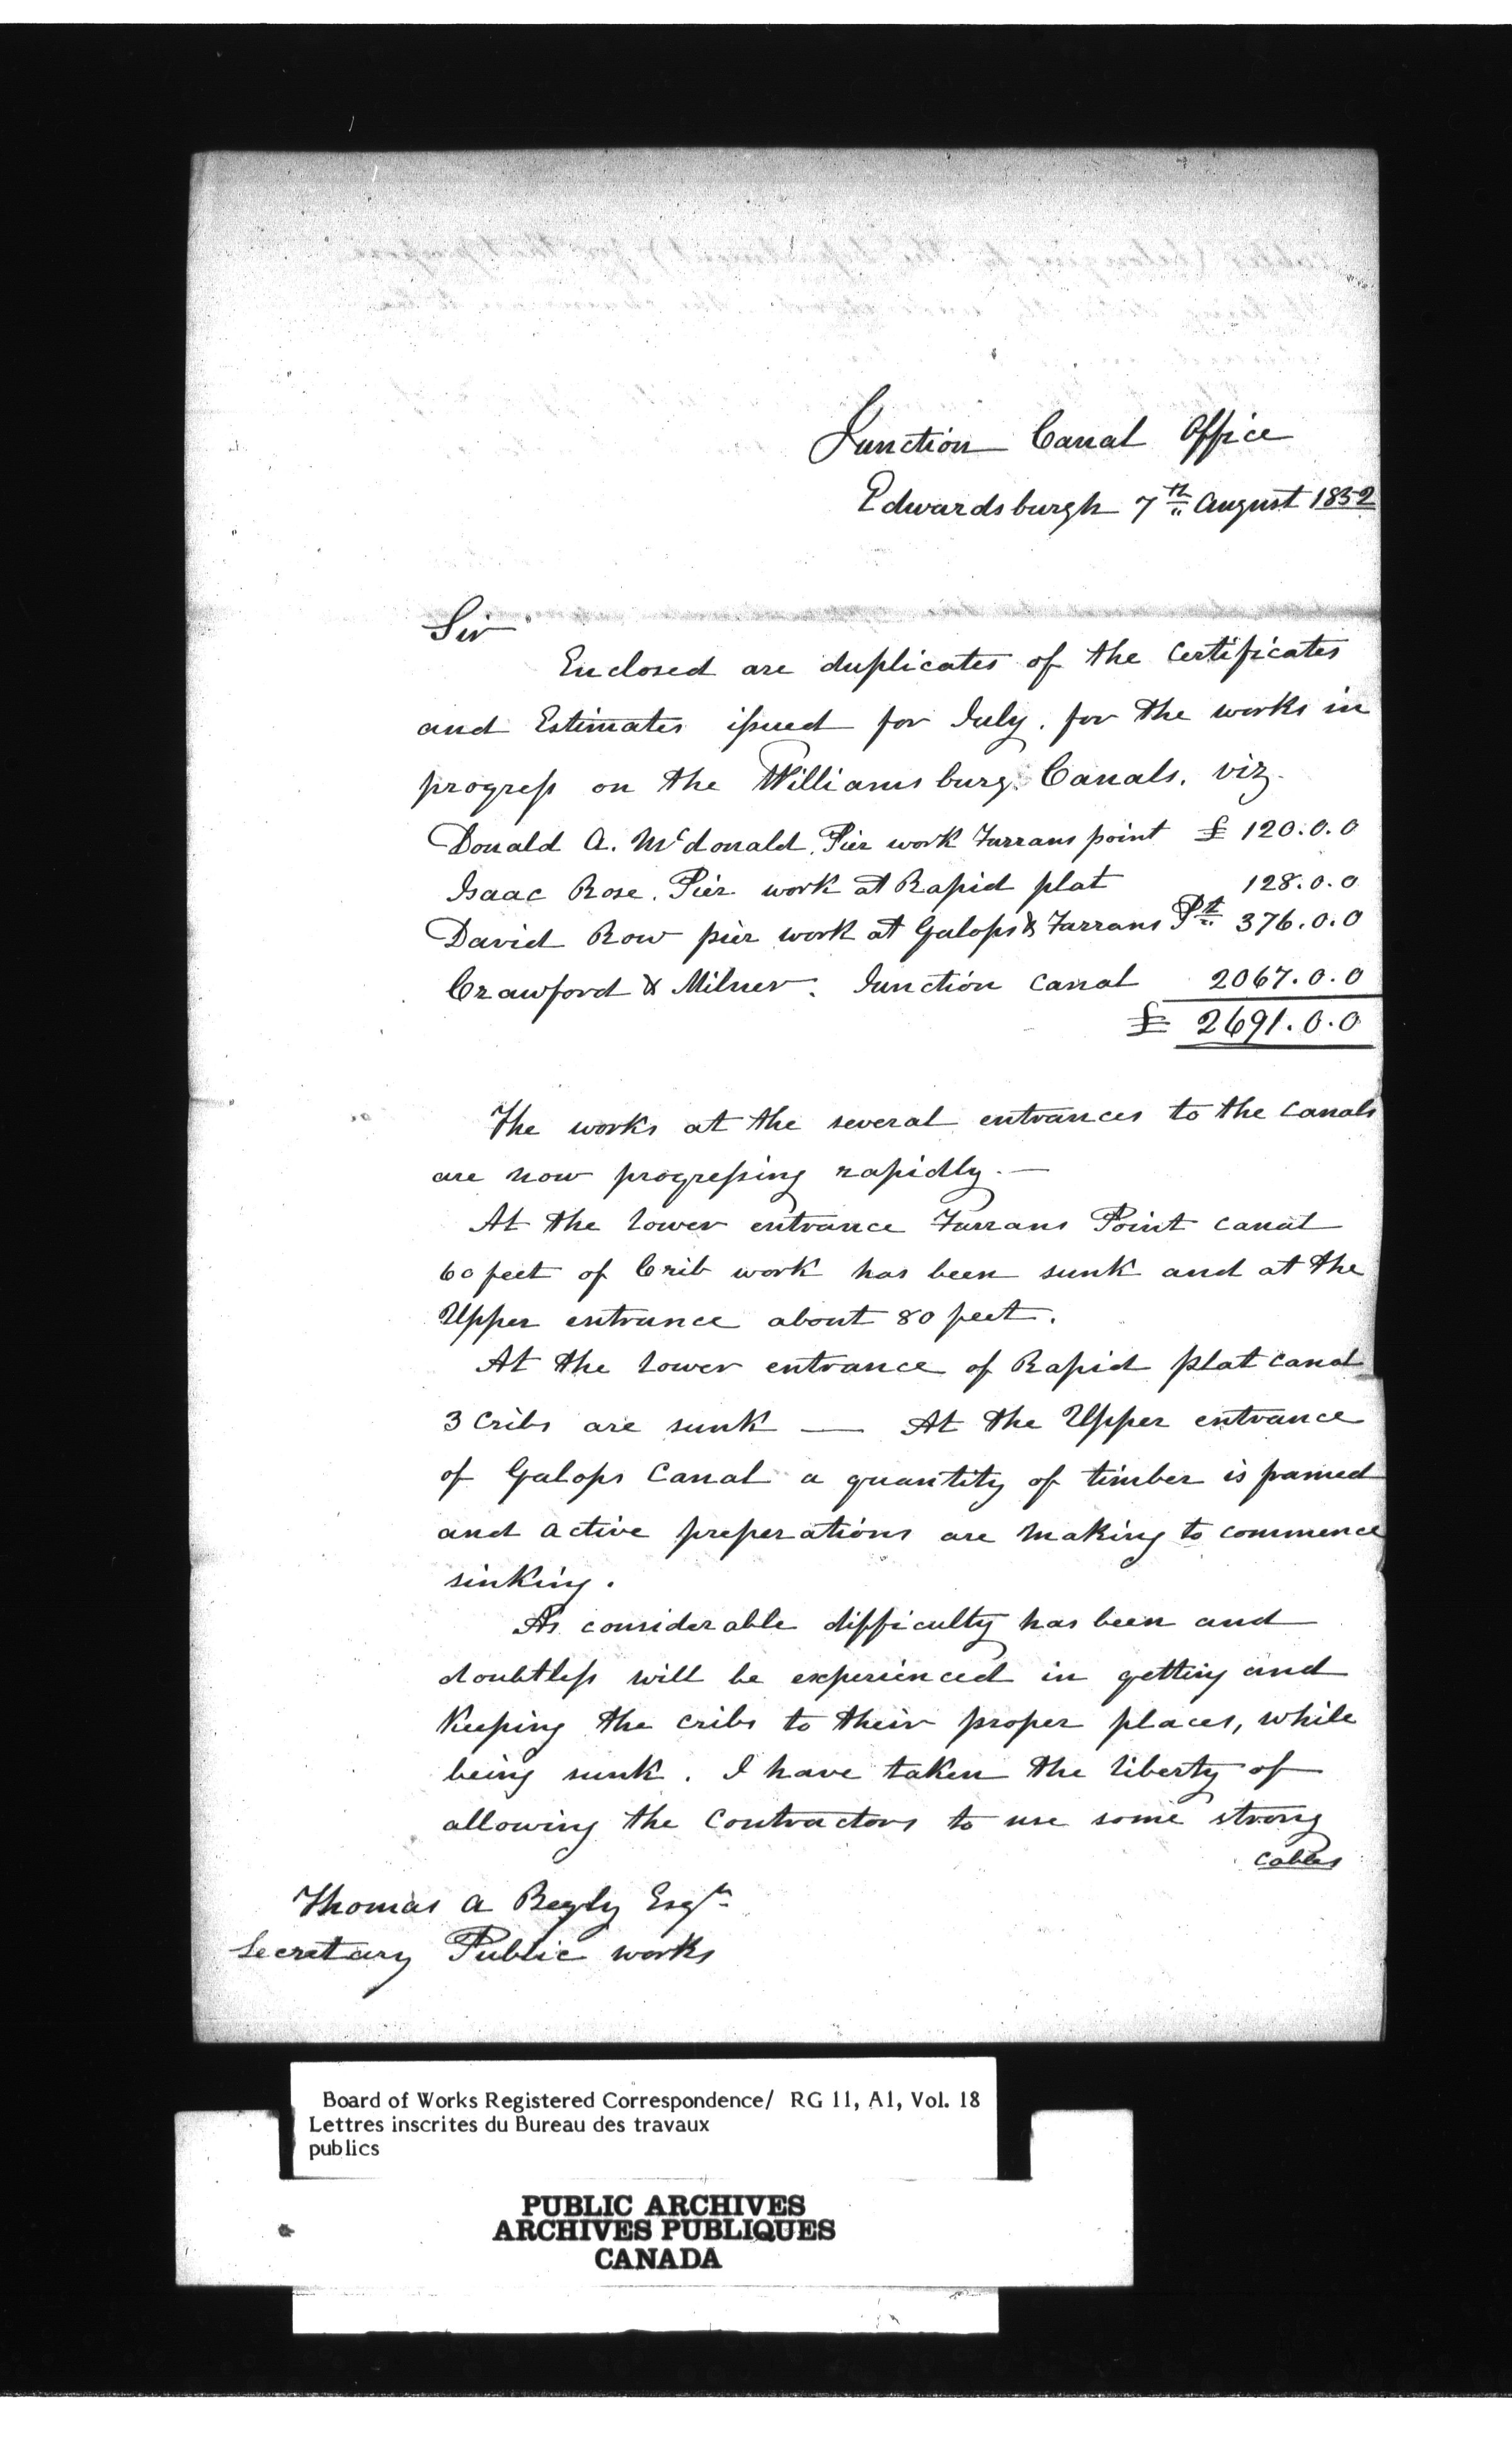 Junction Canal Office
Edwardsburgh 7th August 1852
Sir
Enclosed are duplicates of the Certificates
and Estimates issued for July. for the works in
progress on the Williamsburg. Canals. viz.
Donald A. McDonald. Pier work Farrans point £ 120.0.0
Isaac Rose. Pier work at Rapid plat 128.0.0
David Row pier work at Galops & Farrans Pt. 376.0.0
Crawford & Milner. Junction Canal 2067.0.0
£ 2691.0.0
The works at the several entrances to the Canals
are now progressing rapidly. —
At the lower entrance Farrans Point canal
60 feet of Crib work has been sunk and at the
Upper entrance about 80 feet.
At the lower entrance of Rapid plat canal
3 Cribs are sunk — At the Upper entrance
of Galops Canal a quantity of timber is framed
and active preperations are making to commence
sinking.
As considerable difficulty has been and
doubtless will be experienced in getting and
Keeping the cribs to their proper places, while
being sunk. I have taken the liberty of
allowing the Contractors to use some strong
cables
Thomas A Begly Esqr.
Secretary Public works
Board of Works Registered Correspondence/ RG 11, A1, Vol. 18
Lettres inscrites du Bureau des travaux
publics
PUBLIC ARCHIVES
ARCHIVES PUBLIQUES
CANADA